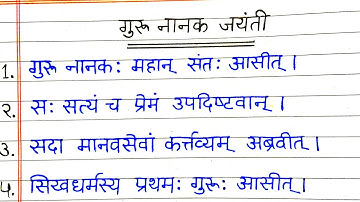 गुरू नानक जयंती
1. गुरू नानकः महान् संतः आसीत्।
२. सः सत्यं च प्रेमं उपदिष्टवान्।
३. सदा मानवसेवां कर्त्तव्यम् अब्रवीत्।
४. सिखधर्मस्य प्रथमः गुरूः आसीत्।